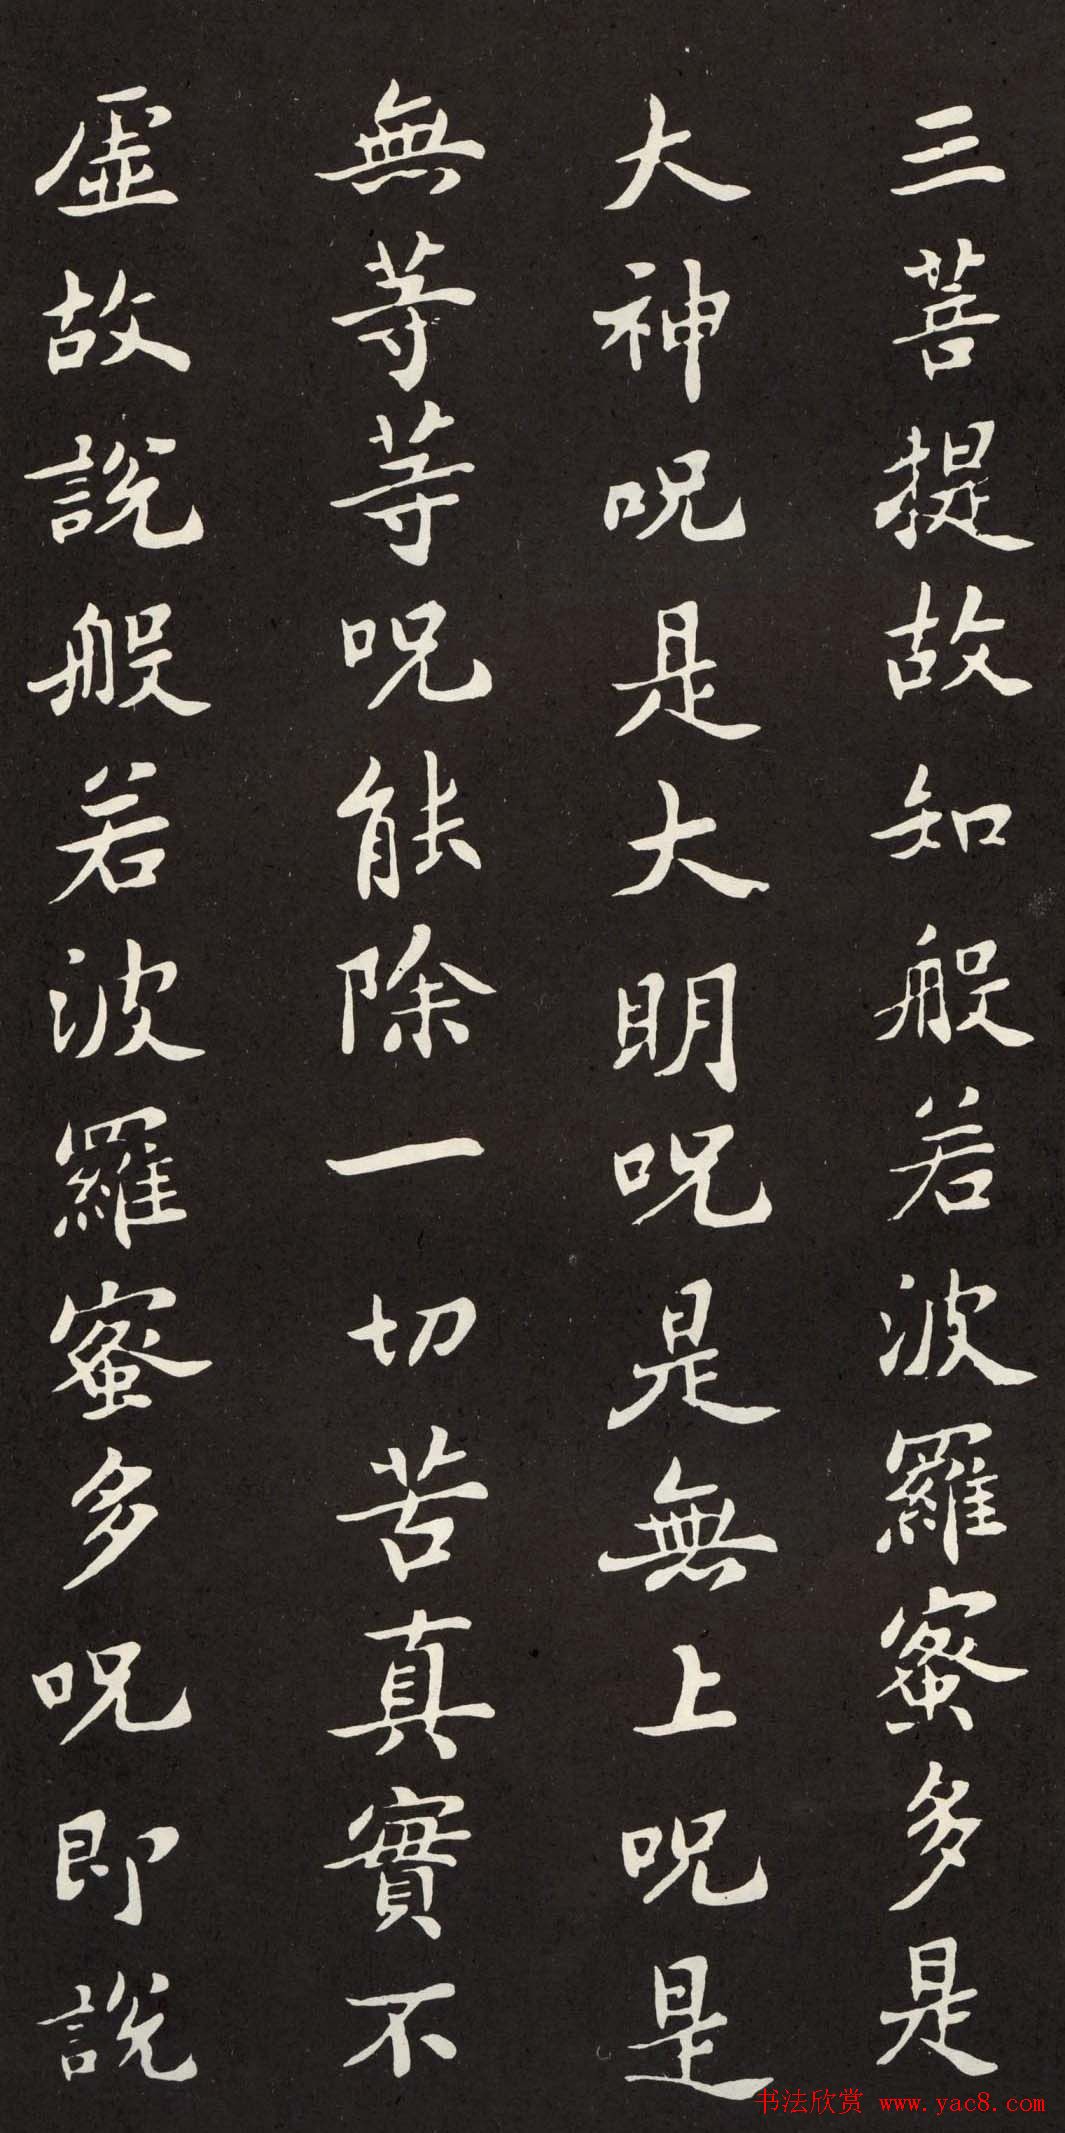 三菩提故知般若波羅蜜多是
大神呪是大明呪是無上呪是
無等等呪能除一切苦真實不
虛故說般若波羅蜜多呪即說
书法欣赏 www.yac8.com